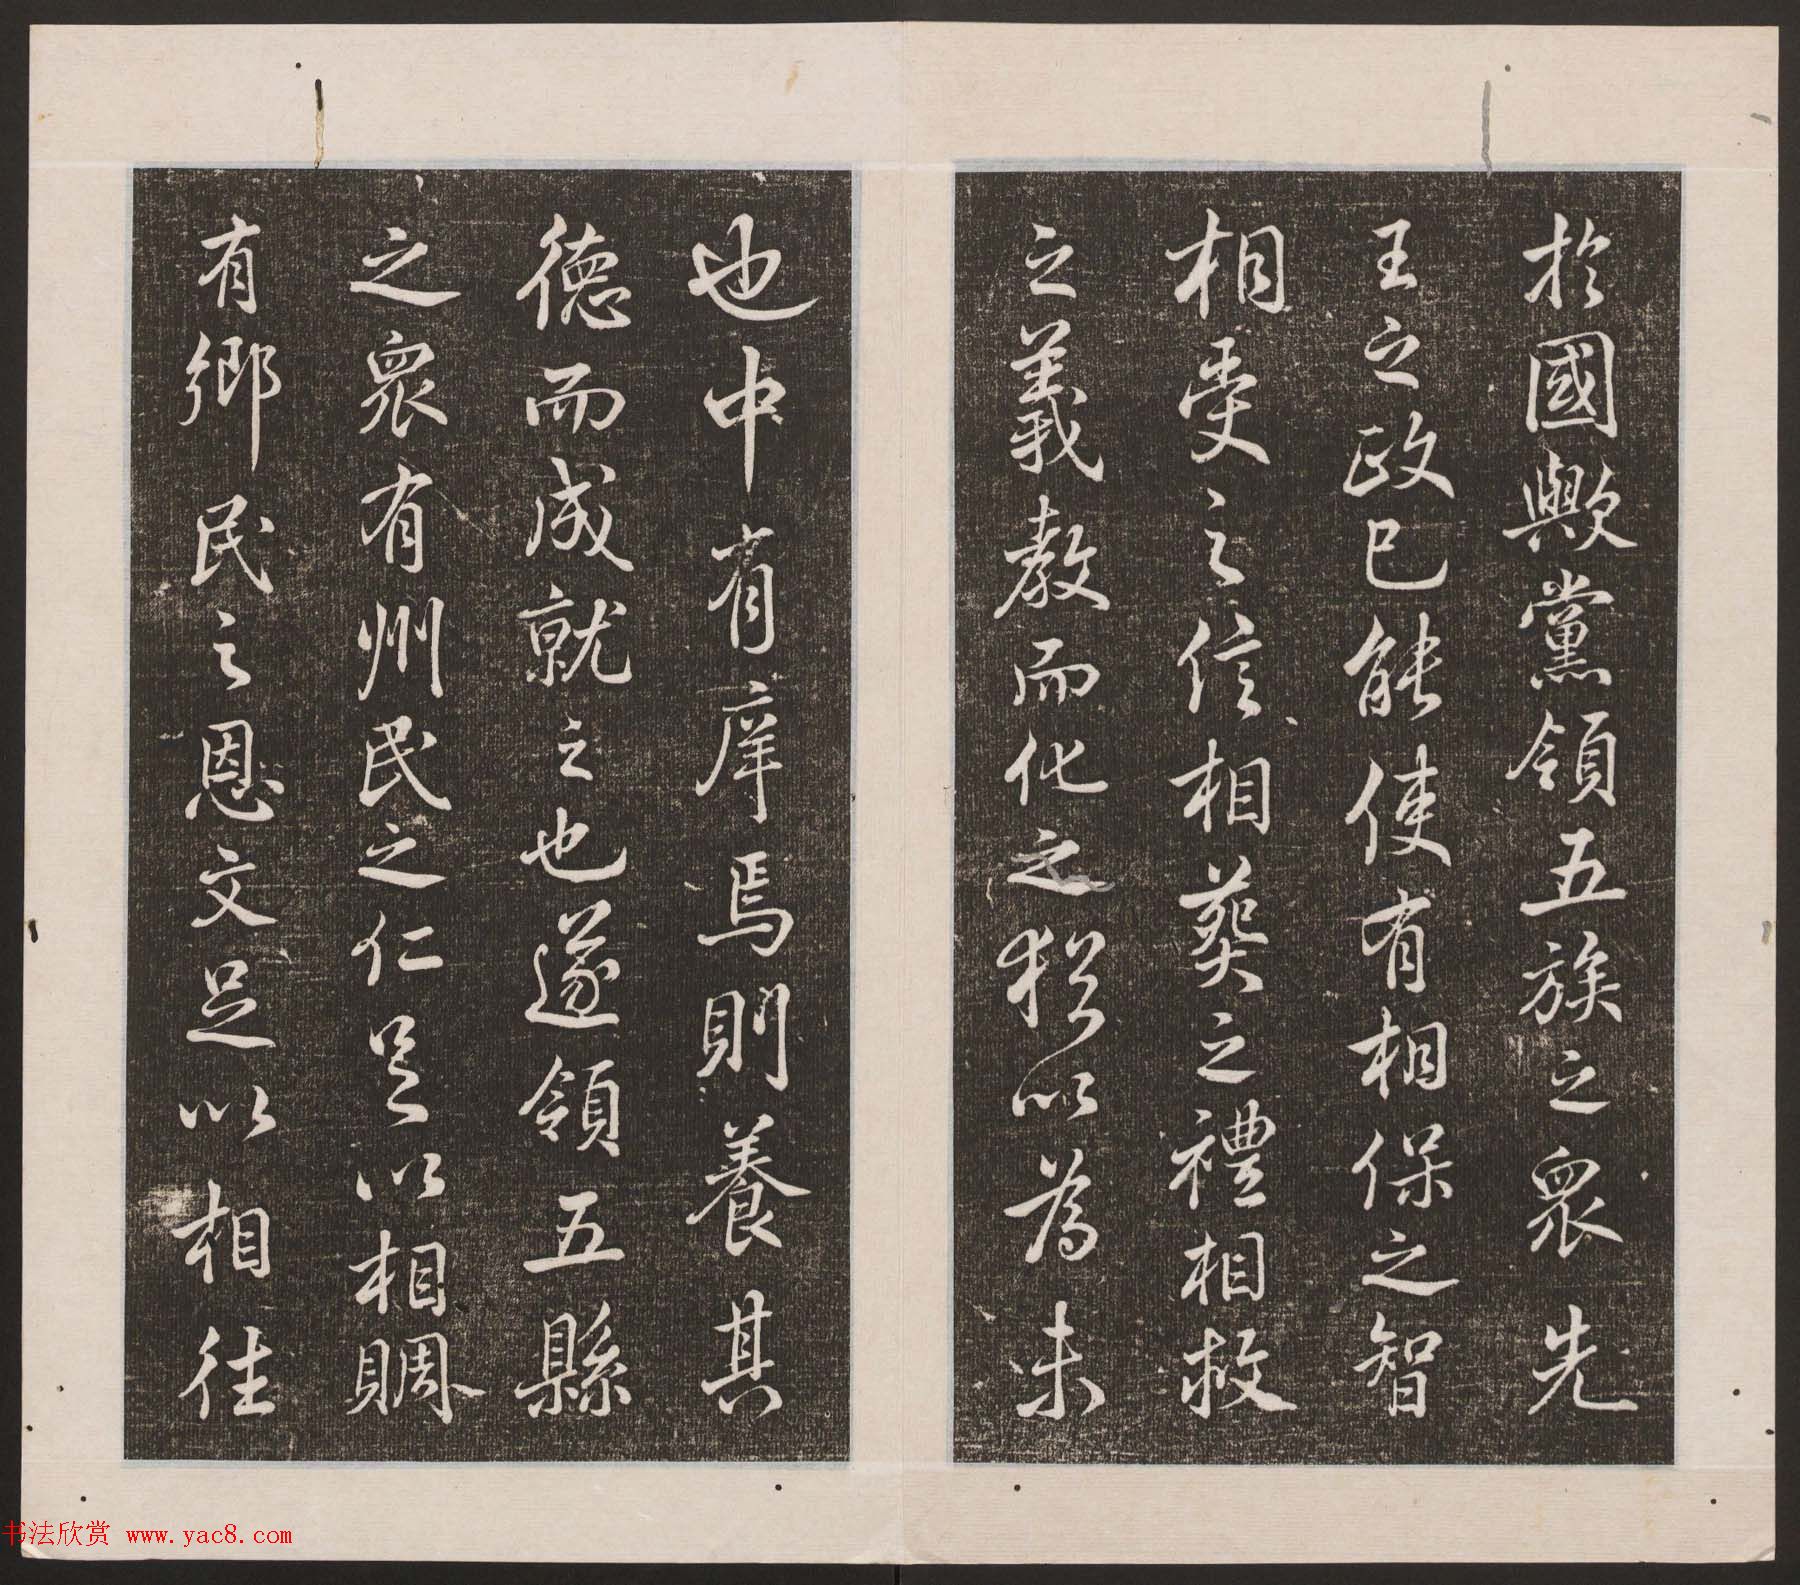 於國歟黨領五族之衆先
王之政已能使有相保之智
相受之信相葬之禮相救
之義教而化之猶以為未
也中有庠焉則養其
德而成就之也遂領五縣
之衆有州民之仁足以相賙
有鄉民之恩文足以相往
书法欣赏 www.yac8.com